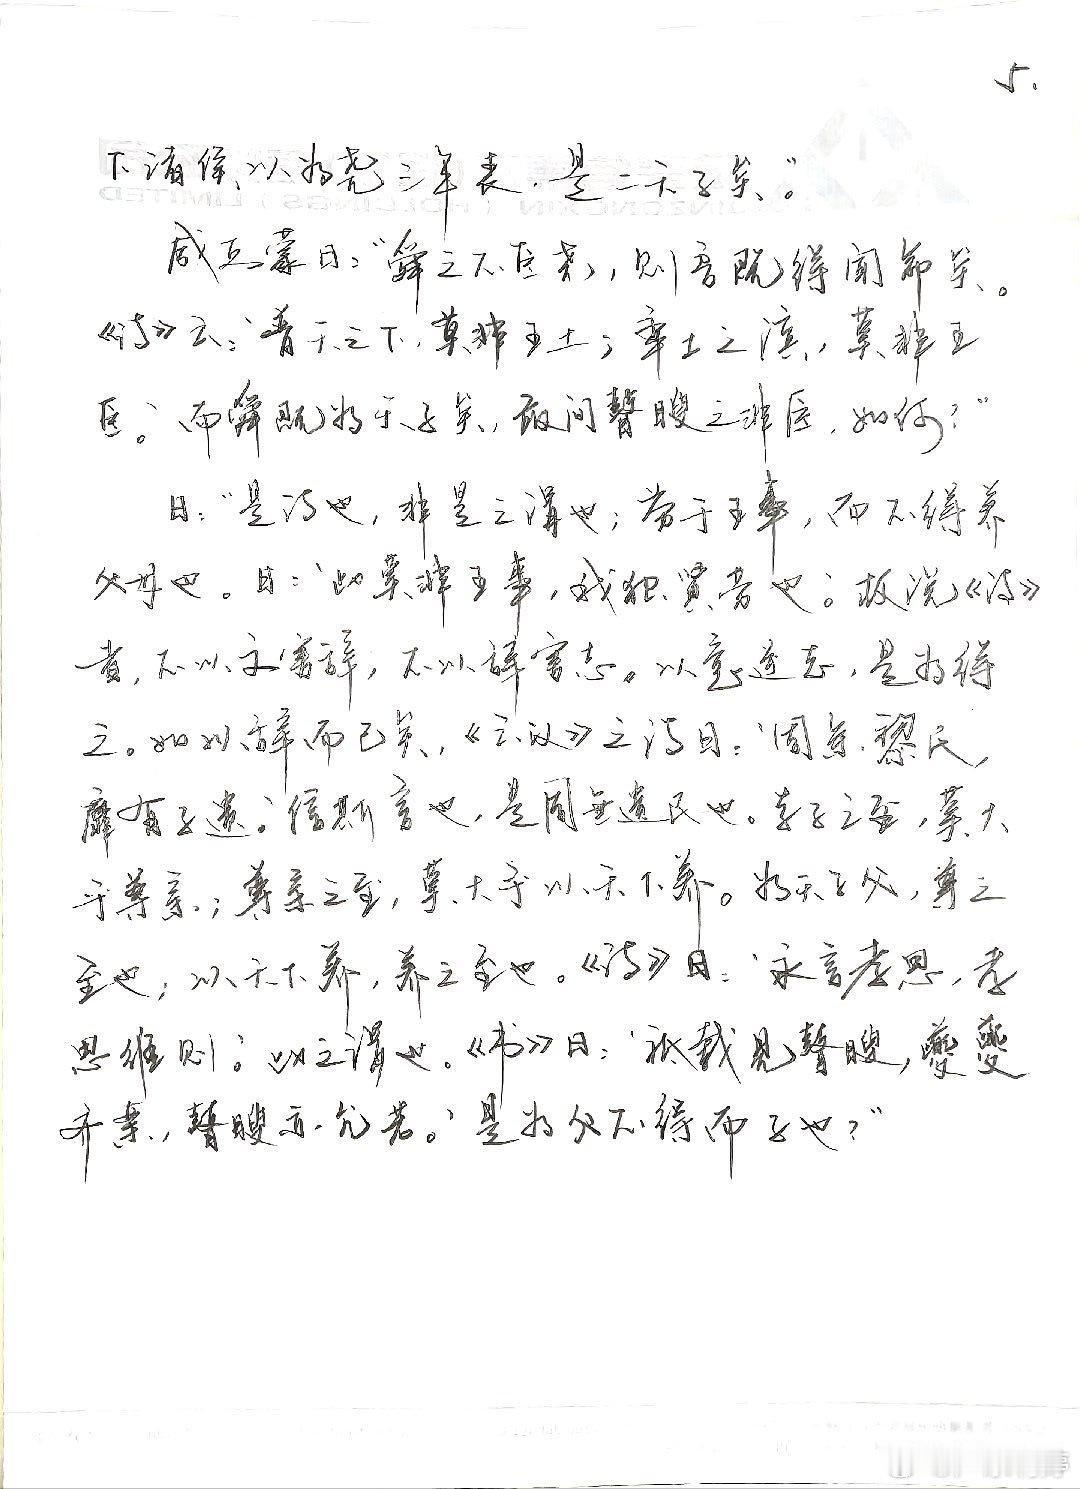 5.
下诸侯以为尧三年丧，是二天子矣。”
咸丘蒙曰：“舜之不臣尧，则吾既得闻命矣。
《诗》云：‘普天之下，莫非王土；率土之滨，莫非王
臣。’而舜既为天子矣，敢问瞽瞍之非臣，如何？”
曰：“是诗也，非是之谓也；劳于王事，而不得养
父母也。曰：‘此莫非王事，我独贤劳也。’故说《诗》
者，不以文害辞，不以辞害志。以意逆志，是为得
之。如以辞而已矣，《云汉》之诗曰：‘周余黎民，
靡有孑遗。’信斯言也，是周无遗民也。孝子之至，莫大
乎尊亲；尊亲之至，莫大乎以天下养。为天子父，尊之
至也；以天下养，养之至也。《诗》曰：‘永言孝思，孝
思维则。’此之谓也。《书》曰：‘祗载见瞽瞍，夔夔
齐栗，瞽瞍亦允若。’是为父不得而子也？”
(HOLDINGS) LIMITED